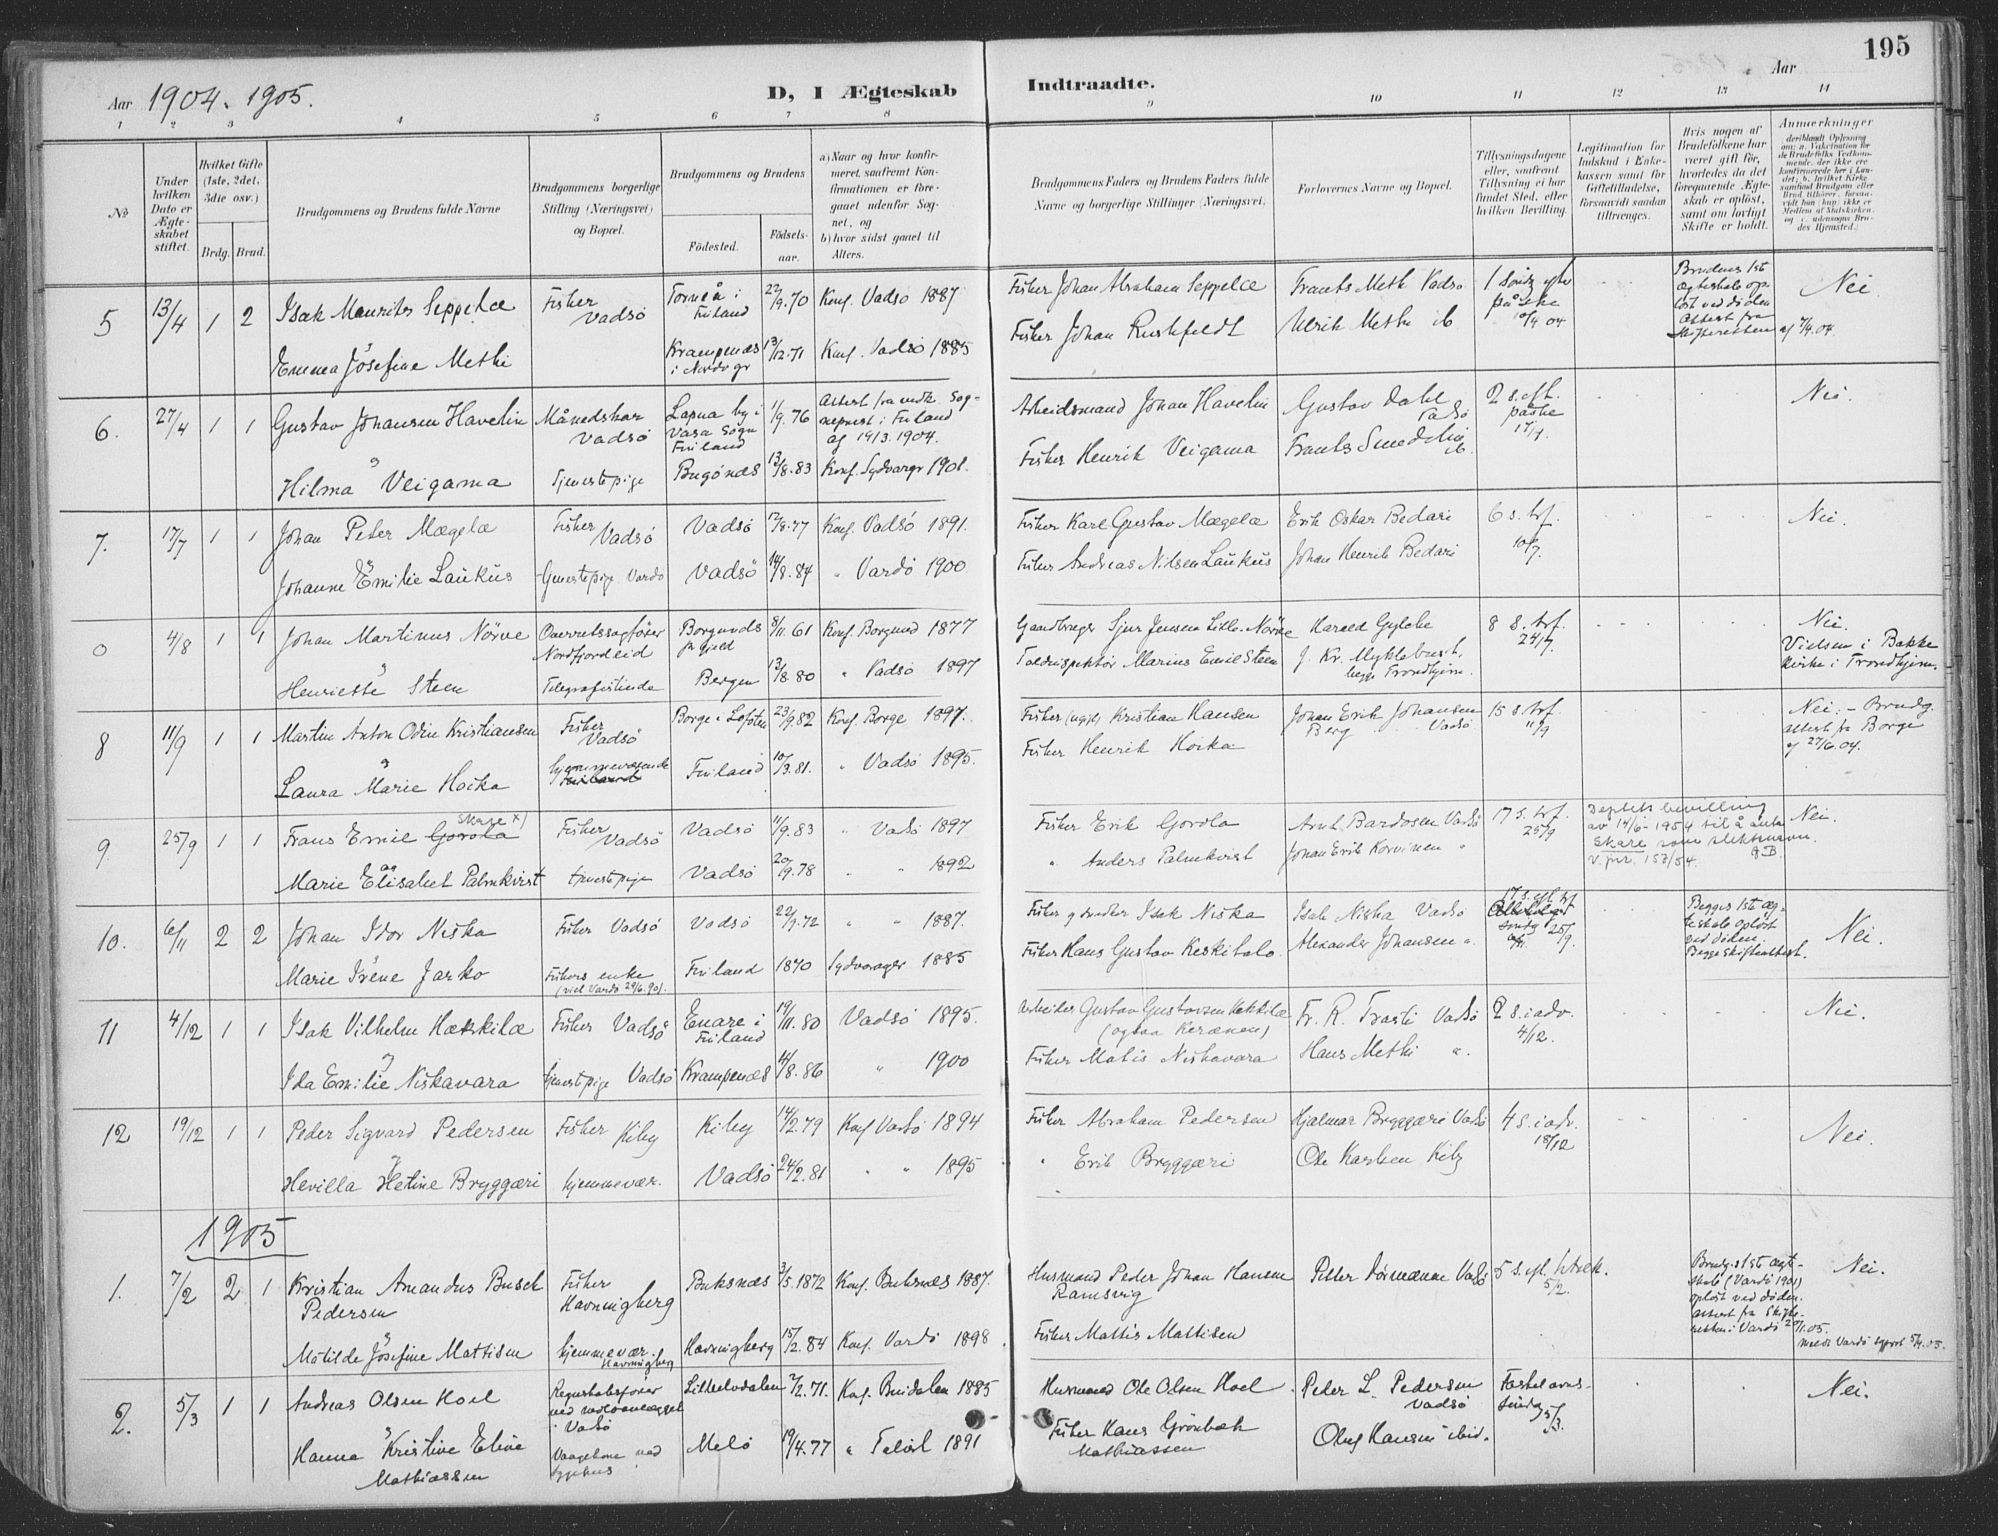 195
Aar 1904. 1905.
D, I Ægteskab Indtraadte.
Aar
1 2 3 4 5 6 7 8 9 10 11 12 13 14
No
Under hvilken Dato er Ægteskabet stiftet.
Hvilket Gifte (1ste, 2det, 3die osv.)
Brdg. Brud.
Brudgommens og Brudens fulde Navne
Brudgommens borgerlige Stilling (Næringsvei) og Bopæl.
Brudgommens og Brudens
Födested. Födsels-aar.
a) Naar og hvor konfirmeret, saafremt Konfirmationen er foregaaet udenfor Sognet, og
b) hvor sidst gaaet til Alters.
Brudgommens Faders og Brudens Faders fulde Navne og borgerlige Stillinger (Næringsvei)
Forlovernes Navne og Bopæl.
Tillysningsdagene eller, saafremt Tillysning ei har fundet Sted, efter hvilken Bevilling.
Legitimation for Indskud i Enkekassen samt for Giftetilladelse, forsaavidt saadan tiltrænges.
Hvis nogen af Brudefolkene har været gift för, hvorledes da det foregaaende Ægteskab er oplöst, samt om lovligt Skifte er holdt.
Anmærkninger
5 13/4 1 2 Isak Mauritz Seppelæ Fisker Vadsö Torneå i Finland 22/9.70 Konf. Vadsö 1887 Fisker Johan Abraham Seppelæ Frants Meth Vadsö 1 sönd. efter påske 10/4 04 Brudens 1ste Ægteskab oplöst ved döden Attest fra skifteretten af 7/4.04. Nei
Emma Josefine Methi Krampenæs i Nordvgr 13/12.71 Konf. Vadsö 1885 Fisker Johan Rushfeldt Ulrik Methi ib
6. 27/4 1 1 Gustav Johansen Havelin Månedskar Vadsö Lapua by i Vasa Sogn Finland 1/9.76 Attest fra vedk. Sogneprest i Finland af 19/3.1904. Arbeidsmand Johan Havelin Gustav Dahl Vadsö 2 s. eft. påske 17/4. Nei.
Hilma Veigama Tjenestepige Bugönæs 13/8.83 Konf. Sydvargr 1901. Fisker Henrik Veigama Frants Smedelin ib.
7. 17/7 1 1 Johan Peter Mægelæ Fisker Vadsö Vadsö 12/8.77 Konf. Vadsö 1891. Fisker Karl Gustav Mægelæ Erik Oskar Bedari 6 s. trf. 10/7. Nei.
Johanne Emilie Laukus Tjenestepige Vardö Vadsö 14/8.84 " Vardö 1900 Fisker Andreas Nilsen Laukus Johan Henrik Bedari
0 4/8 1 1 Johan Martinus Nörve Overretssagförer Nordfjordeid Borgunds prgjeld 8/11 61 Konf. Borgund 1877 Gaardbruger Sjur Jensen Lille-Nörve Harald Gylche 8 s. trf. 24/7. Nei. Vielsen i Bakke kirke i Trondhjem.
Henriette Steen Telegrafistinde Bergen 13/8.80 " Vadsö 1897 Toldinspektör Marius Emil Steen J. Kr. Myklebust, begge Trondhjem.
8 11/9 1 1 Martin Anton Odin Kristiansen Fisher Vadsö Borge i Lofoten 23/9.82 Konf. Borge 1897. Fisker (ugift) Kristian Hansen Johan Erik Johansen Berg Vadsö 15 s. trf. 11/9 Nei. - Brudg. attest fra Borge af 27/6.04.
Laura Marie Hoika hjemmeværende Finland 10/3.81. " Vadsö 1895. Fisker Henrik Hoika
9. 25/9 1 1 Frans Emil Gorola Skare x) Fisher Vadsö Vadsö 11/9.83 " Vadsö 1897 Fisker Erik Gorola Arnt Bardosen Vadsö 17 s. trf. 25/9 Deptets bevilling av 14/6-1954 til å anta Skare som slektsnavn. V. pr. 157/54. Nei.
Marie Elisabet Palmkvist tjenestepige Vadsö 20/9.78 " " 1892 " Anders Palmkvist Johan Erik Korvinen "
10. 6/11 2 2 Johan Idor Niska Fisker Vadsö Vadsö 22/9.72 " 1887. Fisker g Snedker Isak Niska Isak Niska Vadsö 17. s. eft trf 25/9. Begges 1ste ægteskab oplöst ved döden. Begge Skifteattest. Nei.
Marie Irene Jarko Fiskers enke (viel Vardö 29/6.90). Finland 1870 Sydvaranger 1885 Fisker Hans Gustav Keskitalo Alexander Johansen "
11 4/12 1 1 Isak Vilhelm Hækkilæ Fisher Vadsö Enare i Finland 19/11.80 Vadsö 1895. Arbeider Gustav Gustavsen Hekkilæ (ogsaa Keränen) Fr. R. Trasti Vadsö 2 s. i adv. 4/12. Nei.
Ida Emilie Niskavara tjenestpige Vadsö Krampenæs 4/8.86 " 1900 Fisker Matis Niskavara Hans Methi "
12 19/12 1 1 Peder Sigvard Pedersen Fisher Kiby Kiby 14/2.79 Konf Vadsö 1894 Fisker Abraham Pedersen Hjalmar Bryggæri Vadsö 4 s. i adv. 18/12 Nei.
Hevilla Hetine Bryggæri hjemmevær. Vadsö 24/2.81 " " 1895 " Erik Bryggæri Ole Karlsen Kiby
1905
1. 7/2 2 1 Kristian Amandus Busch Pedersen Fisker Havningberg Buksnæs 3/5.1872 Konf. Buksnæs 1887. Husmand Peder Johan Hansen Ramsvig Petter Dörmænen Vadsö 5 s. eft. h3trek. 5/2. Brudg. 1ste ægteskab (Vardö 1901) oplöst ved döden. attest fra Skifteretten i Vardö 20/1.05. Meldt Vardö sgprst 5/4.05. Nei.
Matilde Josefine Mattisen hjemmevær. Havningberg Havningberg 15/2.84 Konf. Vardö 1898 Fisker Mattis Mattisen
2. 5/3 1 1 Andreas Olsen Hoel Regnskabsförer ved moloanlægget i Vadsö Lilleelvdalen 2/2.71. Konf. Buidalen 1885 Husmand Ole Olsen Hoel Peter L. Pedersen Vadsö Fastelavns söndg 5/3. Nei.
Hanna Kristine Eline Mathiassen Vaagekone ved sygehus Melö 19/4.77 " 1891 Fisker Hans Grönbæk Mathiassen Oluf Hansen ibid.